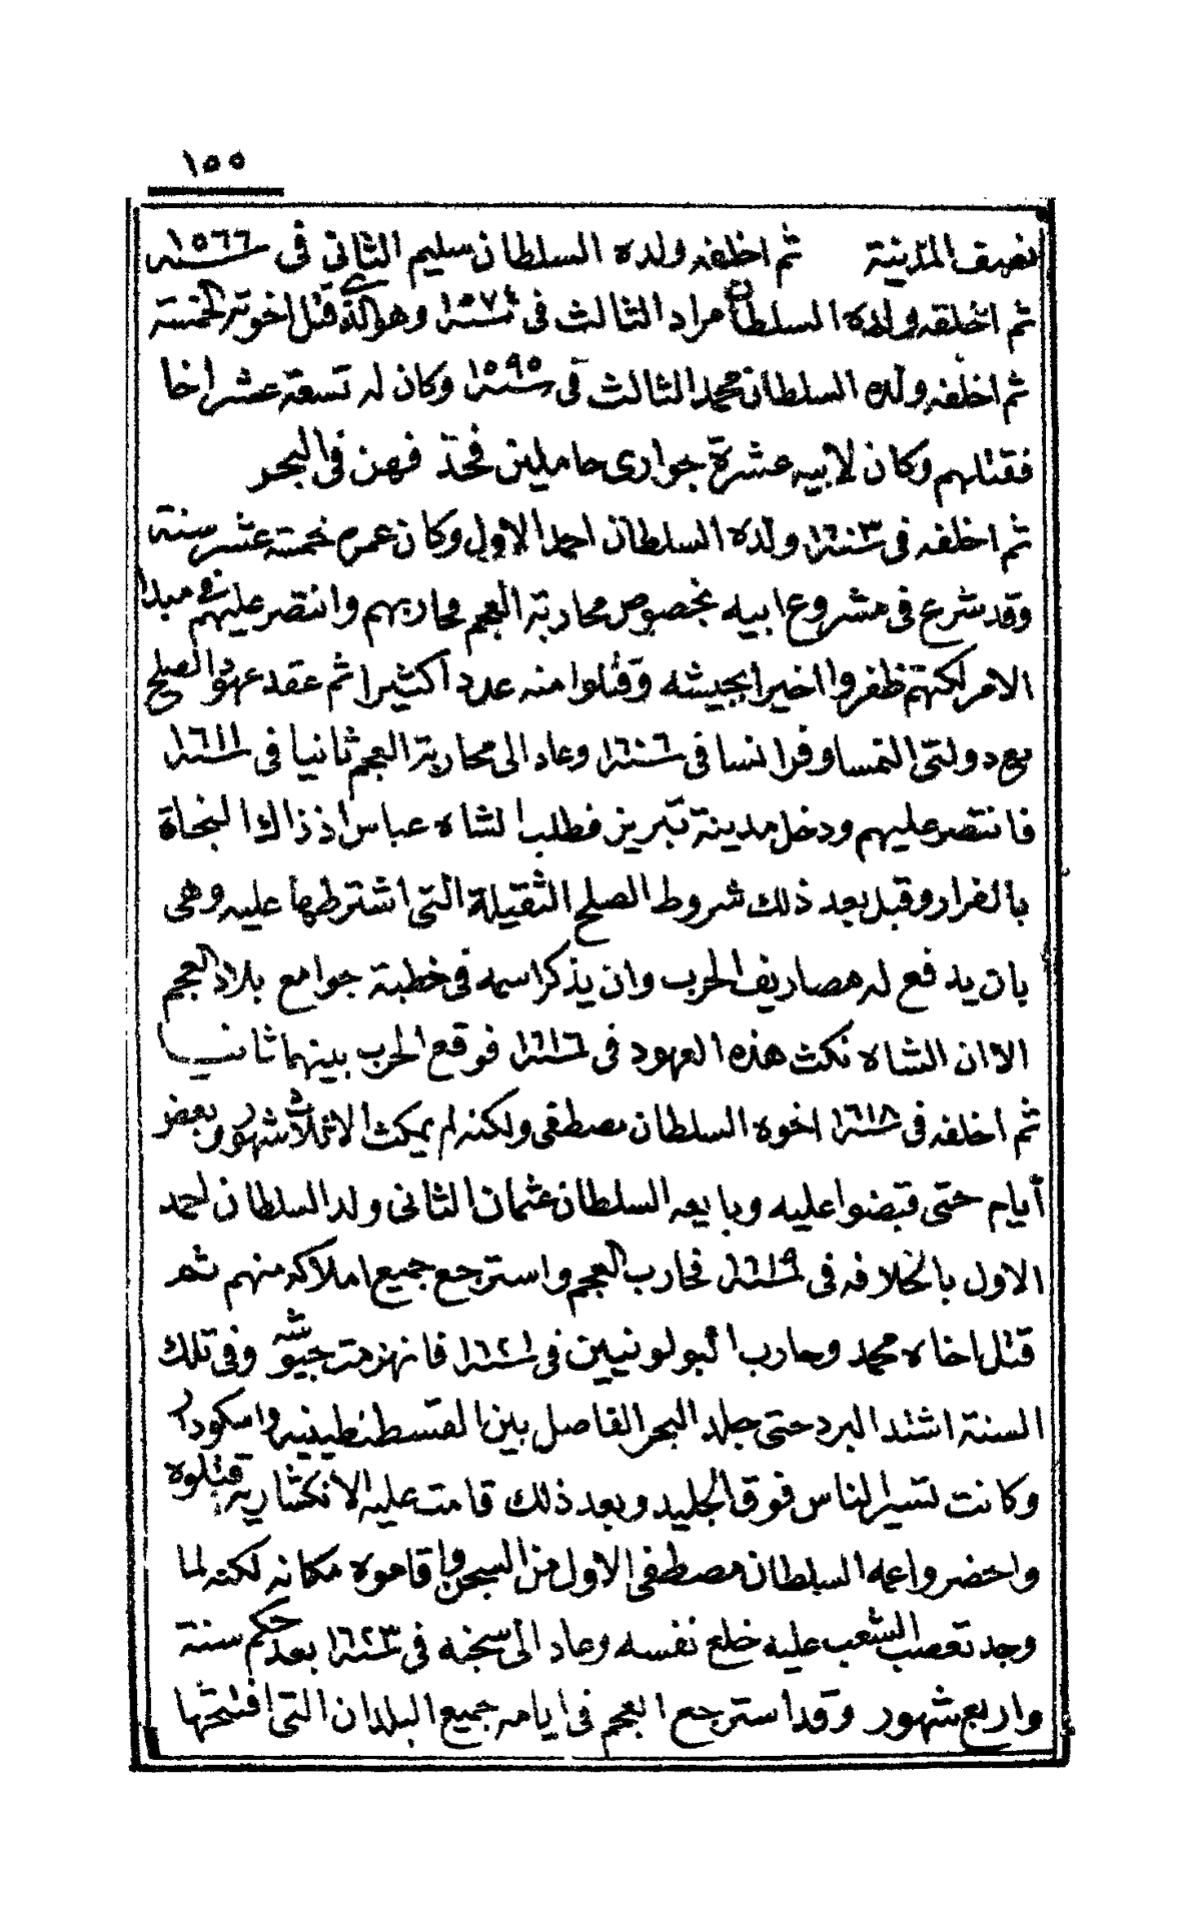 ١٥٥
نصف المدينة ثم اخلفه ولده السلطان سليم الثاني في سنة ١٥٦٦
ثم اخلفه ولده السلطان مراد الثالث في سنة ١٥٧٤ وهو الذي قتل اخوته الخمسة
ثم اخلفه ولده السلطان محمد الثالث في سنة ١٥٩٥ وكان له تسعة عشر اخا
فقتلهم وكان لابيه عشرة جواري حاملين فحذفهن في البحر
ثم اخلفه في سنة ١٦٠٣ ولده السلطان احمد الاول وكان عمره خمسة عشر سنة
وقد شرع في مشروع ابيه بخصوص محاربة العجم فحاربهم وانتصر عليهم في مبدا
الامر لكنهم ظفروا اخيرا بجيشه وقتلوا منه عددا كثيرا ثم عقد عهود الصلح
مع دولتي النمسا وفرانسا في سنة ١٦٠٦ وعاد الى محاربة العجم ثانيا في سنة ١٦١١
فانتصر عليهم ودخل مدينة تبريز فطلب الشاه عباس اذ ذاك النجاة
بالفرار وقبل بعد ذلك شروط الصلح الثقيلة التي اشترطها عليه وهي
بان يدفع له مصاريف الحرب وان يذكر اسمه في خطبة جوامع بلاد العجم
الا ان الشاه نكث هذه العهود في سنة ١٦١٦ فوقع الحرب بينهما ثانيا
ثم اخلفه في سنة ١٦١٨ اخوه السلطان مصطفى ولكنه لم يمكث الا ثلاث شهور وبعض
أيام حتى قبضوا عليه وبايعه السلطان عثمان الثاني ولد السلطان احمد
الاول بالخلافه في سنة ١٦١٩ فحارب العجم واسترجع جميع املاكه منهم ثم
قتل اخاه محمد وحارب البولونيين في سنة ١٦٢١ فانهزمت جيوشه وفي تلك
السنة اشتد البرد حتى جلد البحر الفاصل بين القسطنطينيه واسكودار
وكانت تسير الناس فوق الجليد وبعد ذلك قامت عليه الانكشارية قتلوه
واحضروا عمه السلطان مصطفى الاول من السجن واقاموه مكانه لكنه لما
وجد تعصب الشعب عليه خلع نفسه وعاد الى سجنه في سنة ١٦٢٣ بعد حكم سنة
واربع شهور وقد استرجع العجم في ايامه جميع البلدان التي افتتحها